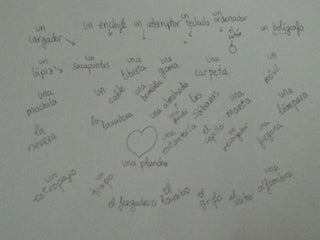 un cargador un enchufe un interruptor un teclado un ordenador un bolígrafo
el ratón
un lápiz un sacapuntas una libreta una goma una carpeta un móvil
una mochila un cable una bombilla una almohada las sábanas una manta una lámpara
la nevera la lavadora una estantería el cepillo un recogedor una fregona
una plancha
un estropajo un trapo el fregadero el lavabo el grifo el váter una alfombra